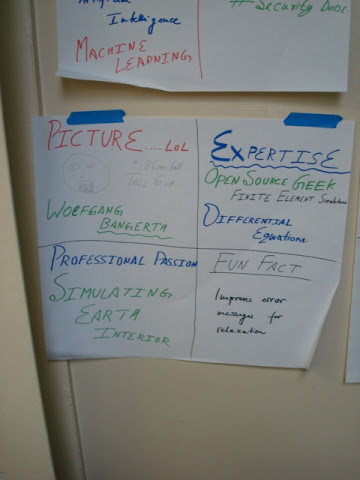 Intelligence
MACHINE
LEARNING
# Security Dude
PICTURE....LOL
TALL GUY
WOLFGANG
BANGERTH
EXPERTISE
OPEN SOURCE GEEK
FINITE ELEMENT Simulations
DIFFERENTIAL
Equations.
PROFESSIONAL PASSION
SIMULATING
EARTH
INTERIOR
FUN FACT
Improves error
messages for
relaxation